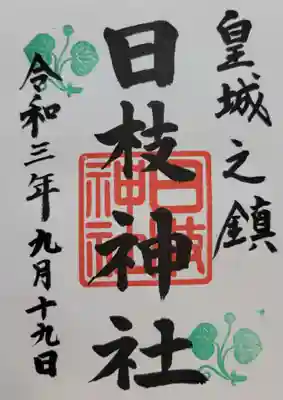 皇城之鎮
日枝神社
日枝神社
令和三年九月十九日